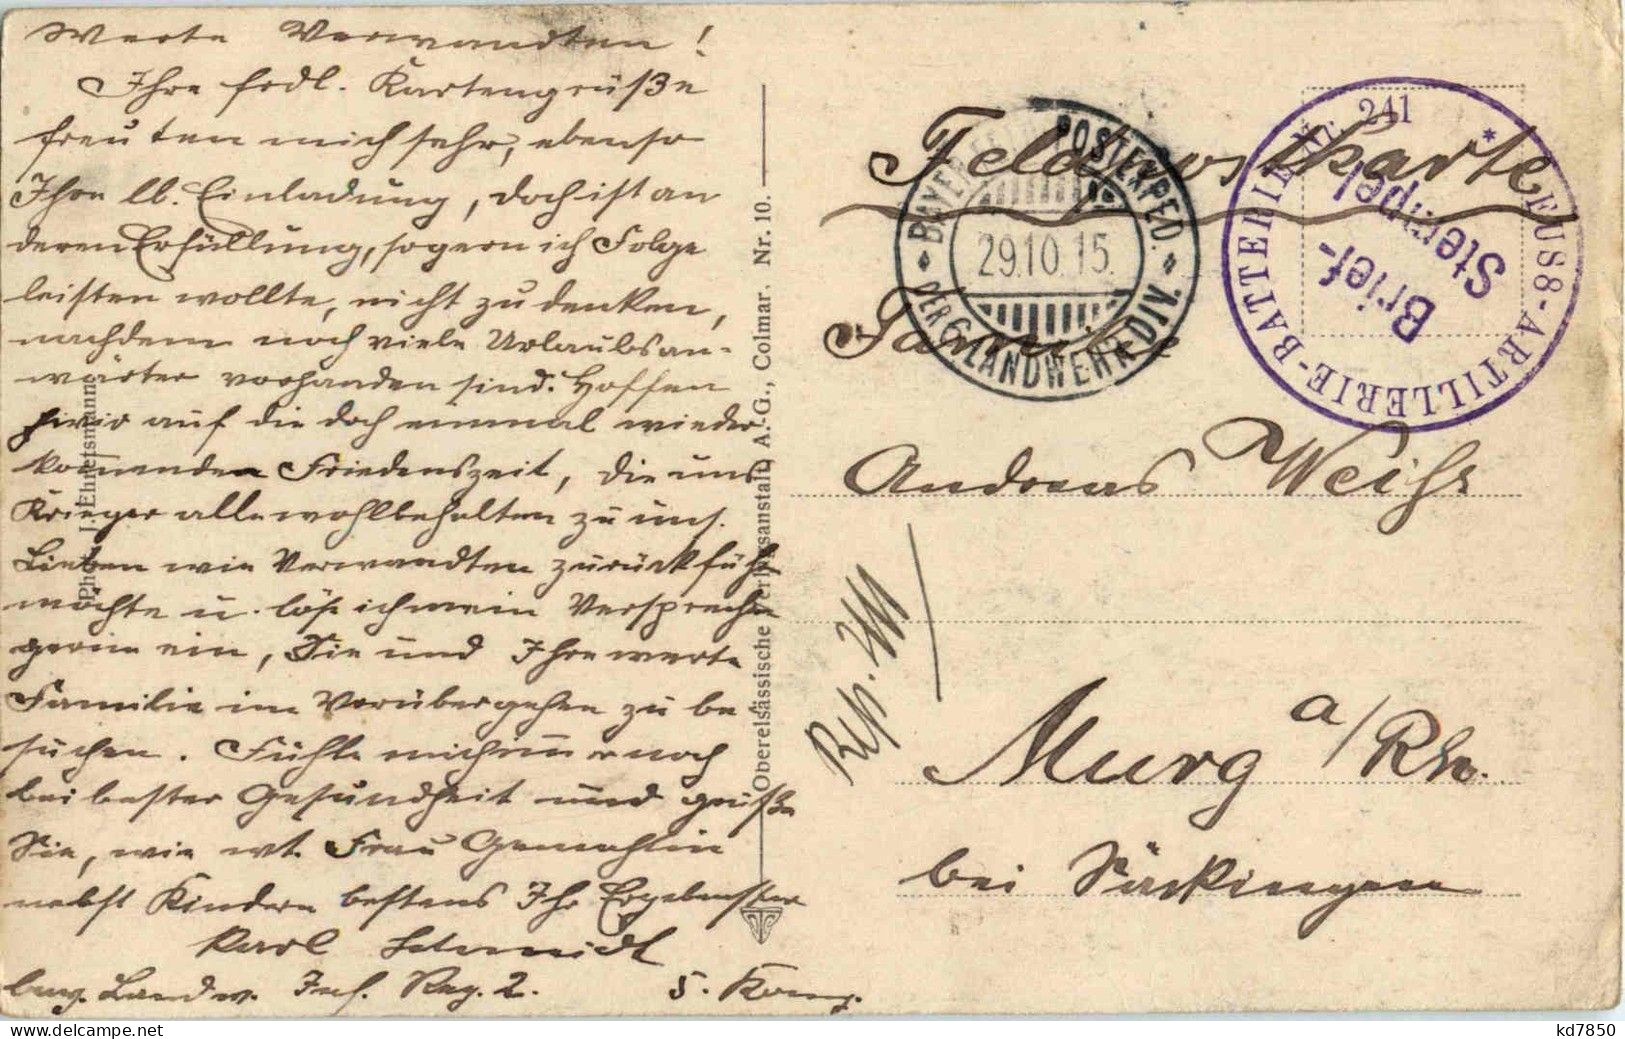 Werte Verwandten!
Ihre frdl. Kartengrüße
freuten mich sehr, ebenso
Ihre lb. Einladung, doch ist an
deren Erfüllung, so gern ich Folge
leisten wollte, nicht zu denken,
nachdem noch viele Urlaubsan-
wärter vorhanden sind. Hoffen
wir auf die doch einmal wieder
kommende Friedenszeit, die uns
Krieger alle wohlbehalten zu uns.
Lieben wie Verwandten zurückführ
möchte u. löse ich mein Versprechen
gerne ein, Sie und Ihre werte
Familie im Vorübergehen zu be-
suchen. Fühle mich immer noch
bei bester Gesundheit und grüße
Sie, wie wt. Frau Gemahlin
nebst Kindern bestens Ihr Ergebenster
Karl Schmidt
bay. Landw. Inf. Reg. 2. 5. Komp.
Phot. J. Ehretsmann
Oberelsässische Verlagsanstalt, A.-G., Colmar. Nr. 10.
Feldpostkarte
BAYER. POSTEXPED.
29.10.15.
DER 6. LANDWEHR-DIV.
FUSS-ARTILLERIE-BATTERIE Nr. 241
Brief-
Stempel
Andreas Weiss
Murg a/Rh.
bei Säckingen
kd7850